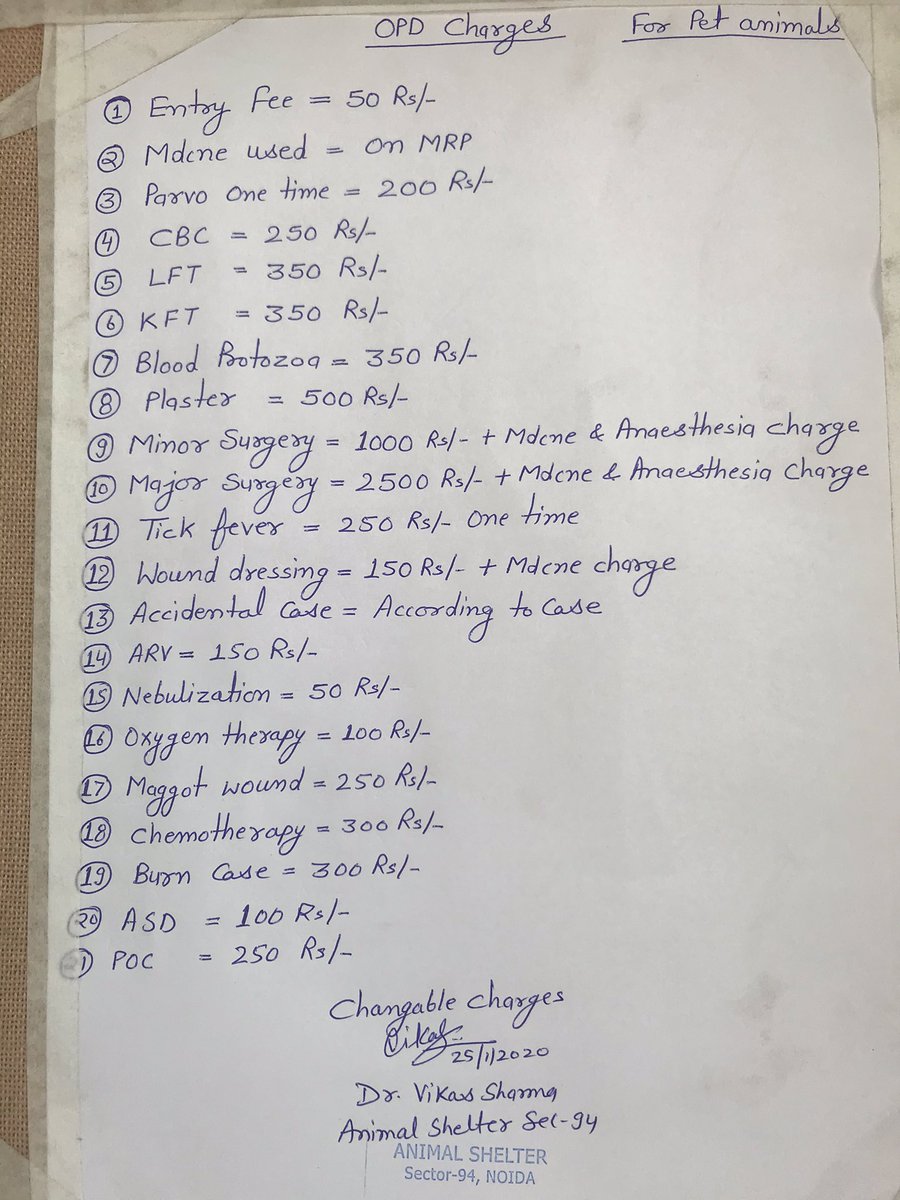 OPD Charges For Pet animals
① Entry Fee = 50 Rs/-
② Mdcne used = On MRP
③ Parvo One time = 200 Rs/-
④ CBC = 250 Rs/-
⑤ LFT = 350 Rs/-
⑥ KFT = 350 Rs/-
⑦ Blood Protozoa = 350 Rs/-
⑧ Plaster = 500 Rs/-
⑨ Minor Surgery = 1000 Rs/- + Mdcne & Anaesthesia charge
⑩ Major Surgery = 2500 Rs/- + Mdcne & Anaesthesia Charge
⑪ Tick fever = 250 Rs/- One time
⑫ Wound dressing = 150 Rs/- + Mdcne charge
⑬ Accidental Case = According to Case
⑭ ARV = 150 Rs/-
⑮ Nebulization = 50 Rs/-
⑯ Oxygen therapy = 100 Rs/-
⑰ Maggot wound = 250 Rs/-
⑱ Chemotherapy = 300 Rs/-
⑲ Burn Case = 300 Rs/-
⑳ ASD = 100 Rs/-
㉑ POC = 250 Rs/-
Changable Charges
Vikas
25/1/2020
Dr. Vikas Sharma
Animal Shelter Sec-94
ANIMAL SHELTER
Sector-94, NOIDA